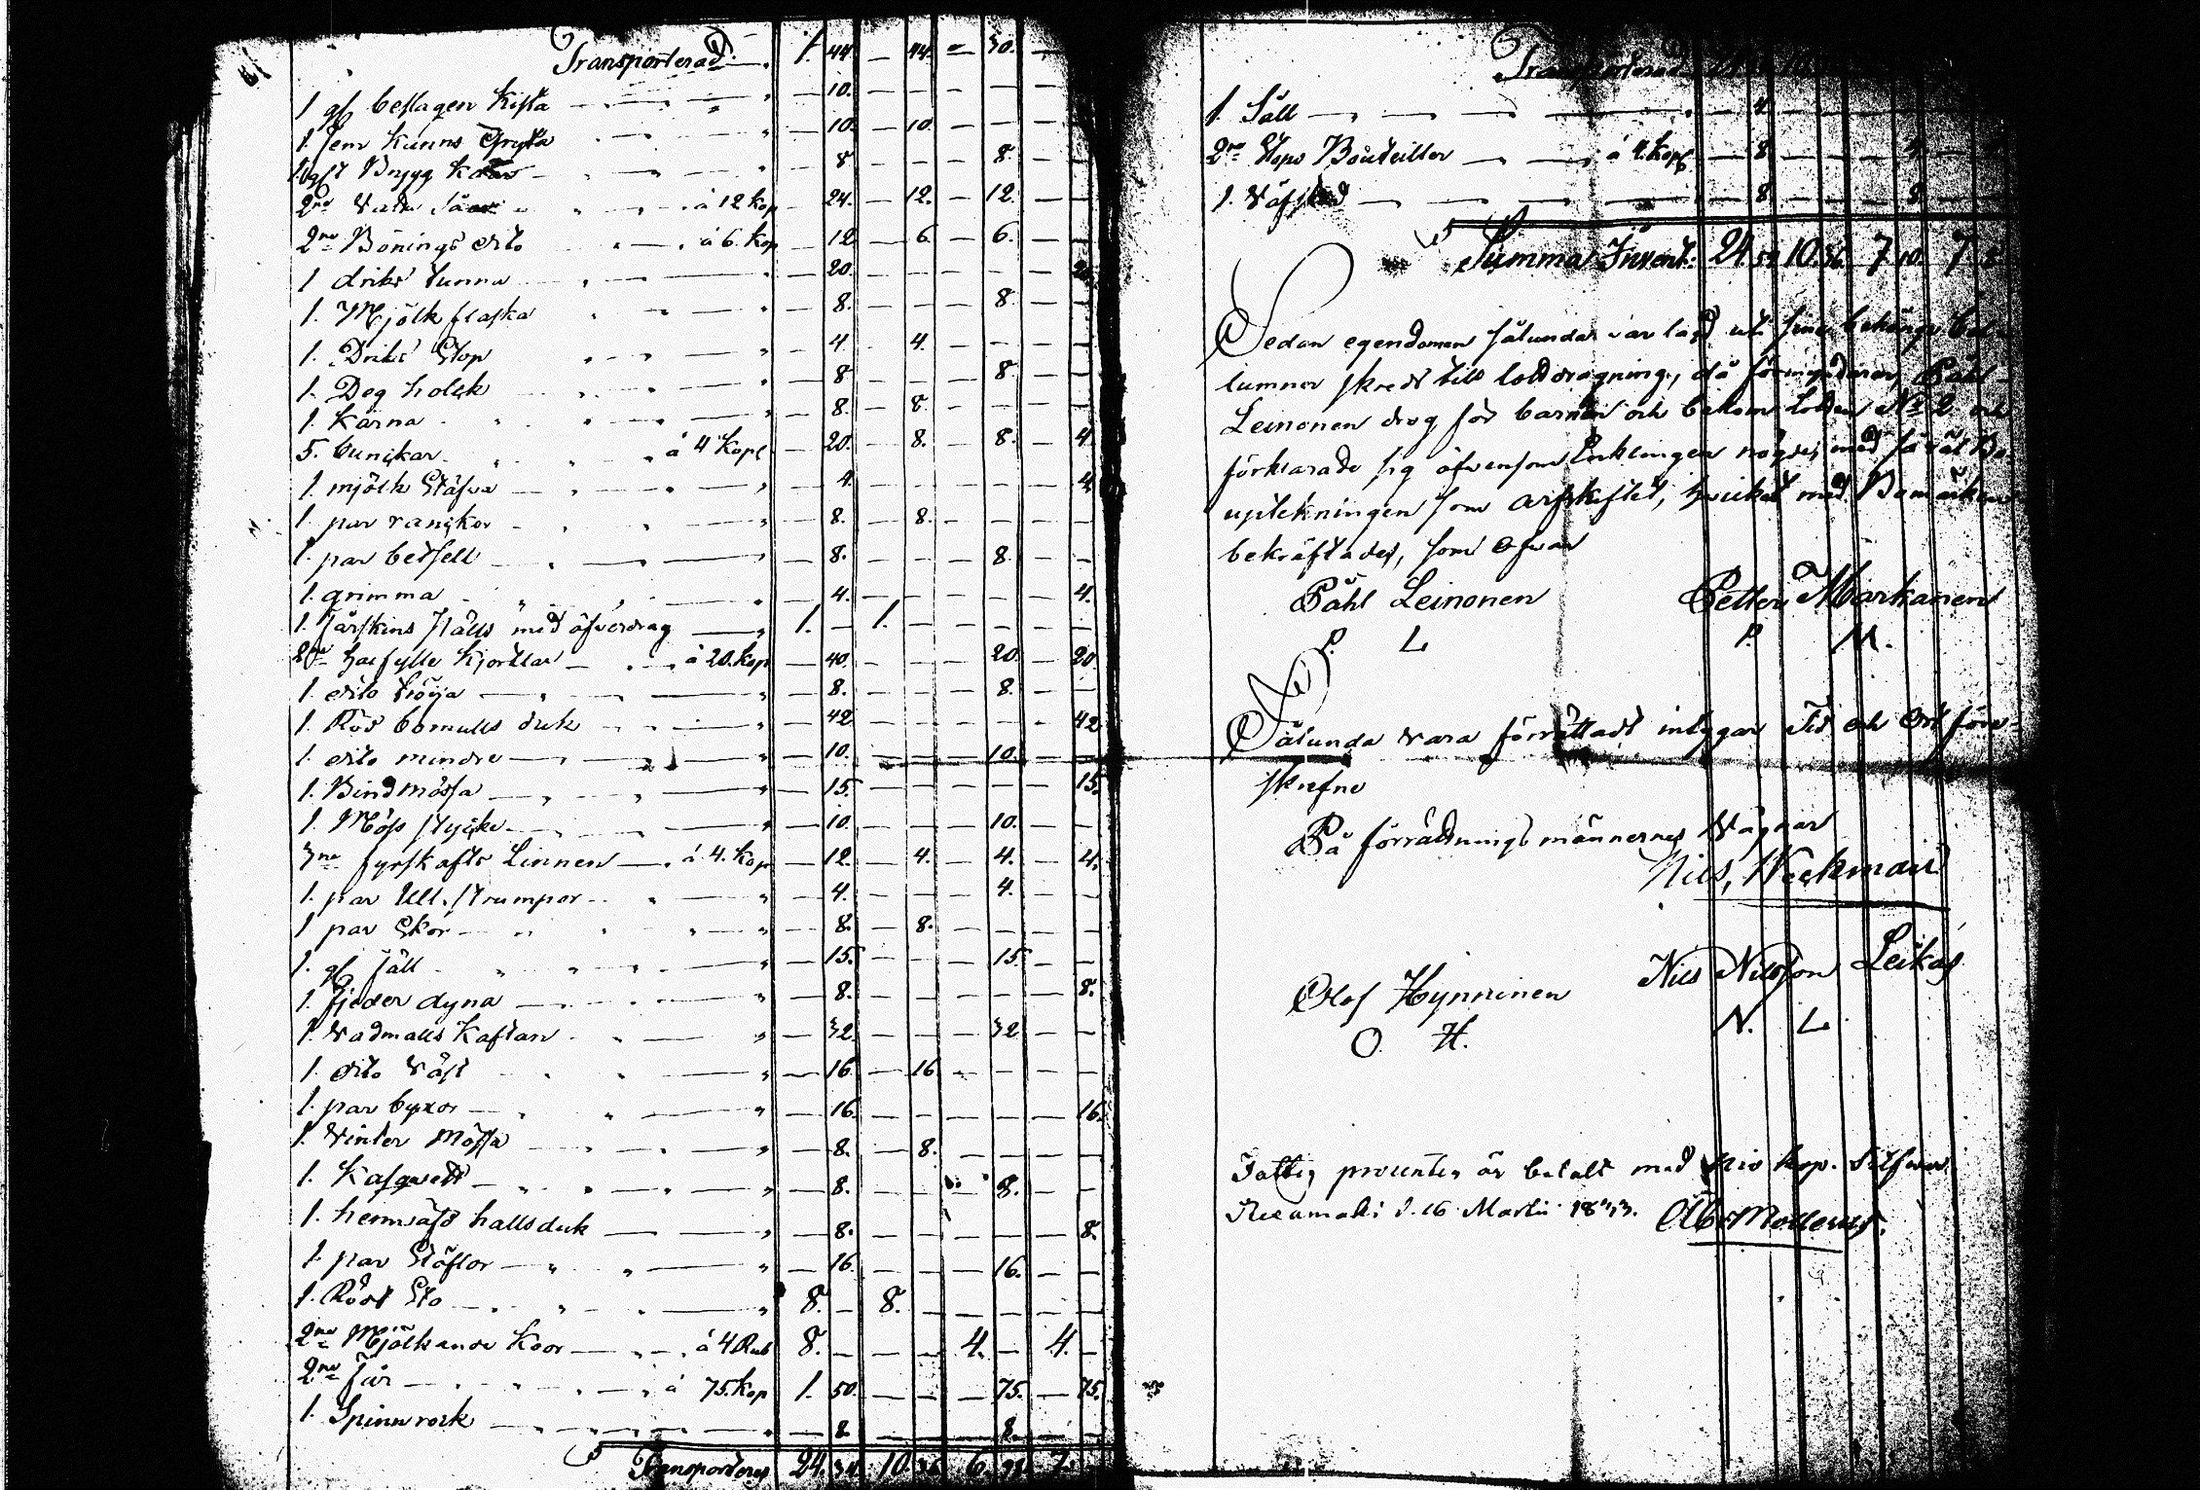 Transporterad 1. 44 — 44. — 50. —
1 gl beslagen Kista — 10.
1. Jern Kanns Gryta — 10. — 10.
1 Brygg Kar — 8 — 8.
2ne Vatn Såar á 12 Kop — 24. — 12. — 12.
2ne Bönings dito á 6. Kop — 12 — 6. — 6.
1 driks tunna — 20. — 20.
1. Mjölk flaska — 8. — 8.
1. Driks Stop — 4 — 4.
1. Deg holck — 8 — 8.
1. Kärna — 8. — 8.
5. bunckar á 4 Kope — 20. — 8. — 8. — 4.
1. mjölk Stäfva — 4. — 4
1. par ranckor — 8. — 8.
1. par betsell — 8. — 8.
1. grimma — 4. — 4.
1. fårskins fälls med öfverdrag 1. — 1.
2ne halfylle Kjortlar á 20. Kop — 40. — 20. — 20.
1. dito tröija — 8. — 8.
1. Röd bomulls duk — 42 — 42
1. dito mindre — 10. — 10.
1. Bindmössa — 15. — 15.
1. Möss stycke — 10. — 10.
3ne fyrskafts Linnen á 4. Kop — 12. — 4. — 4. — 4.
1. par Ull. strumpor — 4. — 4.
1 par Skor — 8. — 8.
1. gl fäll — 15. — 15.
1. fjeder dyna — 8. — 8.
1. Vadmalls Kaftan — 32. — 32
1. dito Väst — 16. — 16
1. par byxor — 16. — 16.
1. Vinter Mössa — 8. — 8.
1. Kasquett — 8. — 8.
1. hemväfd hallsduk — 8. — 8.
1. par Stöflor — 16. — 16.
1. Rödt Sto 8. — 8.
2ne Mjölkande Koor á 4 Rub 8. — 4. — 4.
2ne Får á 75. Kop 1. 50. — 75. — 75.
1. Spinnrock — 8. — 8.
Transporteras 24. 10. 36 6. 7.
Transporterad
1. Såll — 4
2ne Stops Bouteiller á 4. Kop — 8
1. Väfsked — 8
Summa Invent: 24 10. 36. 7 10. 7
Sedan egendomen sålunda var lagd uti sine behörige
lumner skreds till lottdragning, då förmyndaren, Påhl
Leinonen drog för barnen och bekom Lotten No 2 och
förklarade sig äfvensom Enklingen nögde med så väl Bo
uptekningen som arfskiftet, hvilket med Bomärken
bekräftades, som ofvan
Påhl Leinonen Petter Markanen
P. L P. M.
Sålunda vara förrättadt intygar Tid och Ort före-
skrefne
På förrättningsmännernes Vägnar
Nils Weckman
Olof Hynninen Nils Nilsson Leikas
O. H. N. L.
Fattig procenten är betalt med kop. Silfver.
d. 16 Martii 1843.